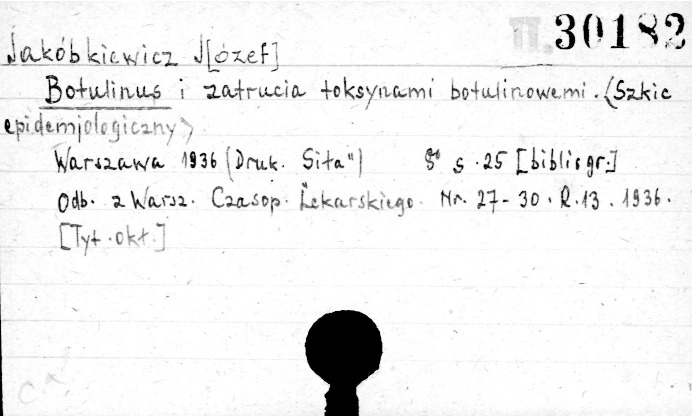 II.30182
Jakóbkiewicz J[ózef]
Botulinus i zatrucia toksynami botulinowemi. (Szkic
epidemjologiczny)
Warszawa 1936 (Druk. "Siła") 8° s. 25 [bibliogr.]
Odb. z Warsz. Czasop. Lekarskiego. Nr. 27-30. R.13. 1936.
[Tyt. okł.]